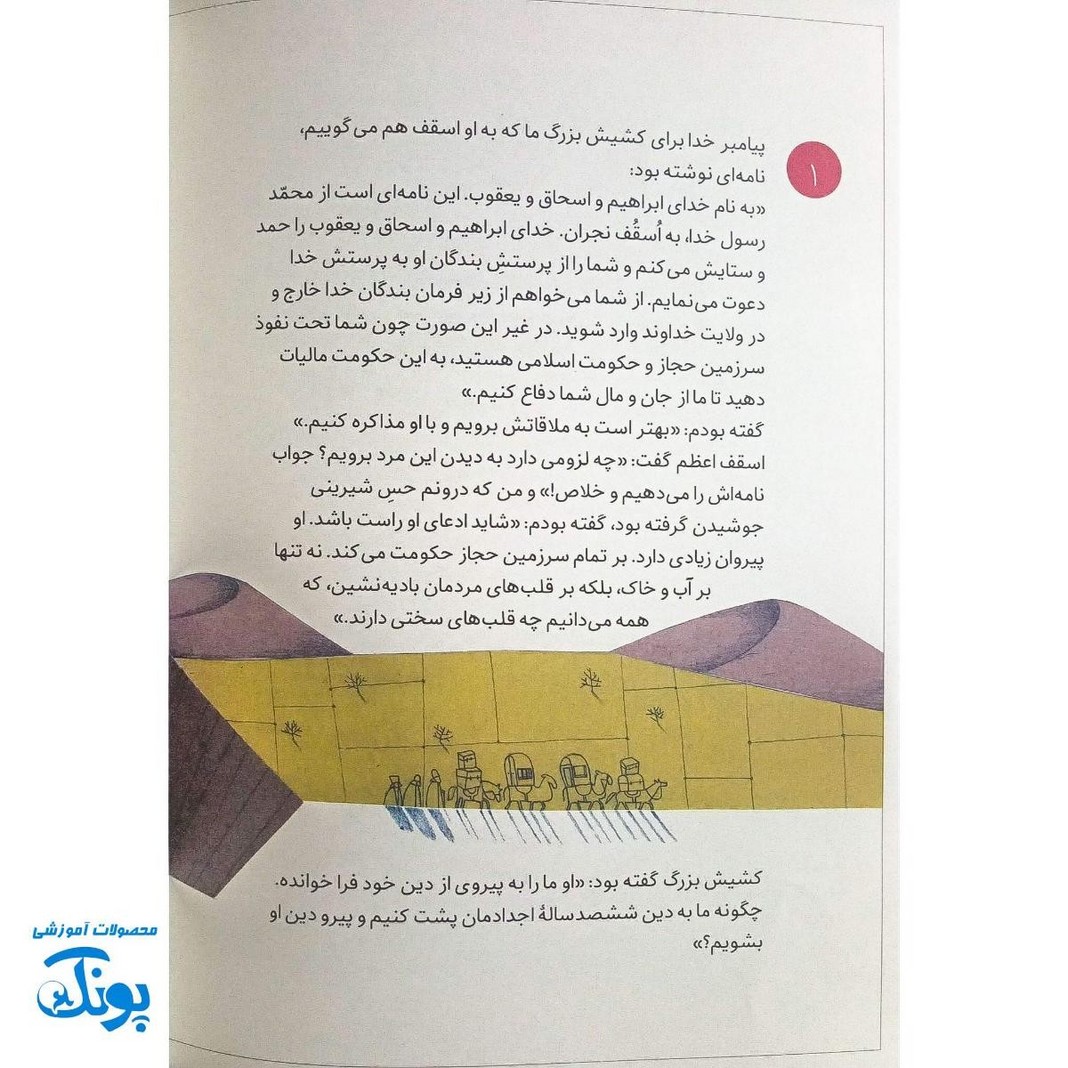 ۱
پیامبر خدا برای کشیش بزرگ ما که به او اسقف هم می‌گوییم،
نامه‌ای نوشته بود:
«به نام خدای ابراهیم و اسحاق و یعقوب. این نامه‌ای است از محمّد
رسول خدا، به اُسقُف نجران. خدای ابراهیم و اسحاق و یعقوب را حمد
و ستایش می‌کنم و شما را از پرستشِ بندگان او به پرستش خدا
دعوت می‌نمایم. از شما می‌خواهم از زیر فرمان بندگان خدا خارج و
در ولایت خداوند وارد شوید. در غیر این صورت چون شما تحت نفوذ
سرزمین حجاز و حکومت اسلامی هستید، به این حکومت مالیات
دهید تا ما از جان و مال شما دفاع کنیم.»
گفته بودم: «بهتر است به ملاقاتش برویم و با او مذاکره کنیم.»
اسقف اعظم گفت: «چه لزومی دارد به دیدن این مرد برویم؟ جواب
نامه‌اش را می‌دهیم و خلاص!» و من که درونم حسِ شیرینی
جوشیدن گرفته بود، گفته بودم: «شاید ادعای او راست باشد. او
پیروان زیادی دارد. بر تمام سرزمین حجاز حکومت می‌کند. نه تنها
بر آب و خاک، بلکه بر قلب‌های مردمان بادیه‌نشین، که
همه می‌دانیم چه قلب‌های سختی دارند.»
کشیش بزرگ گفته بود: «او ما را به پیروی از دین خود فرا خوانده.
چگونه ما به دین ششصدسالهٔ اجدادمان پشت کنیم و پیرو دین او
بشویم؟»
محصولات آموزشی
پونک